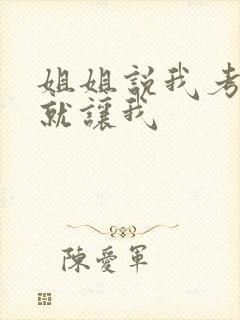 姐姐説我考
就讓我
陳愛軍